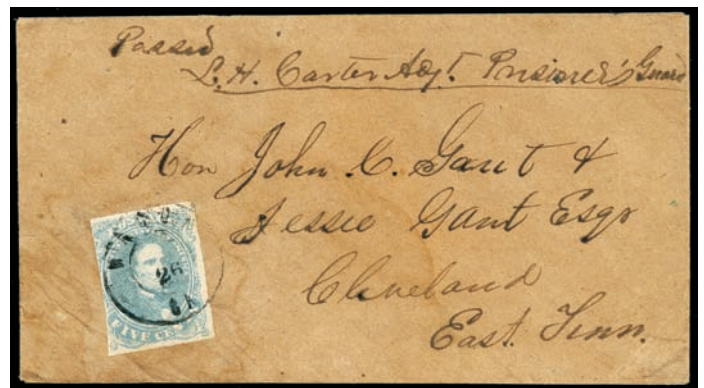 Passed
L. H. Carter Adgt. Prisoner's Guard
Hon John C. Gaut &
Jessee Gaut Esqr
Cleveland
East. Tenn.
26
GA
FIVE CE